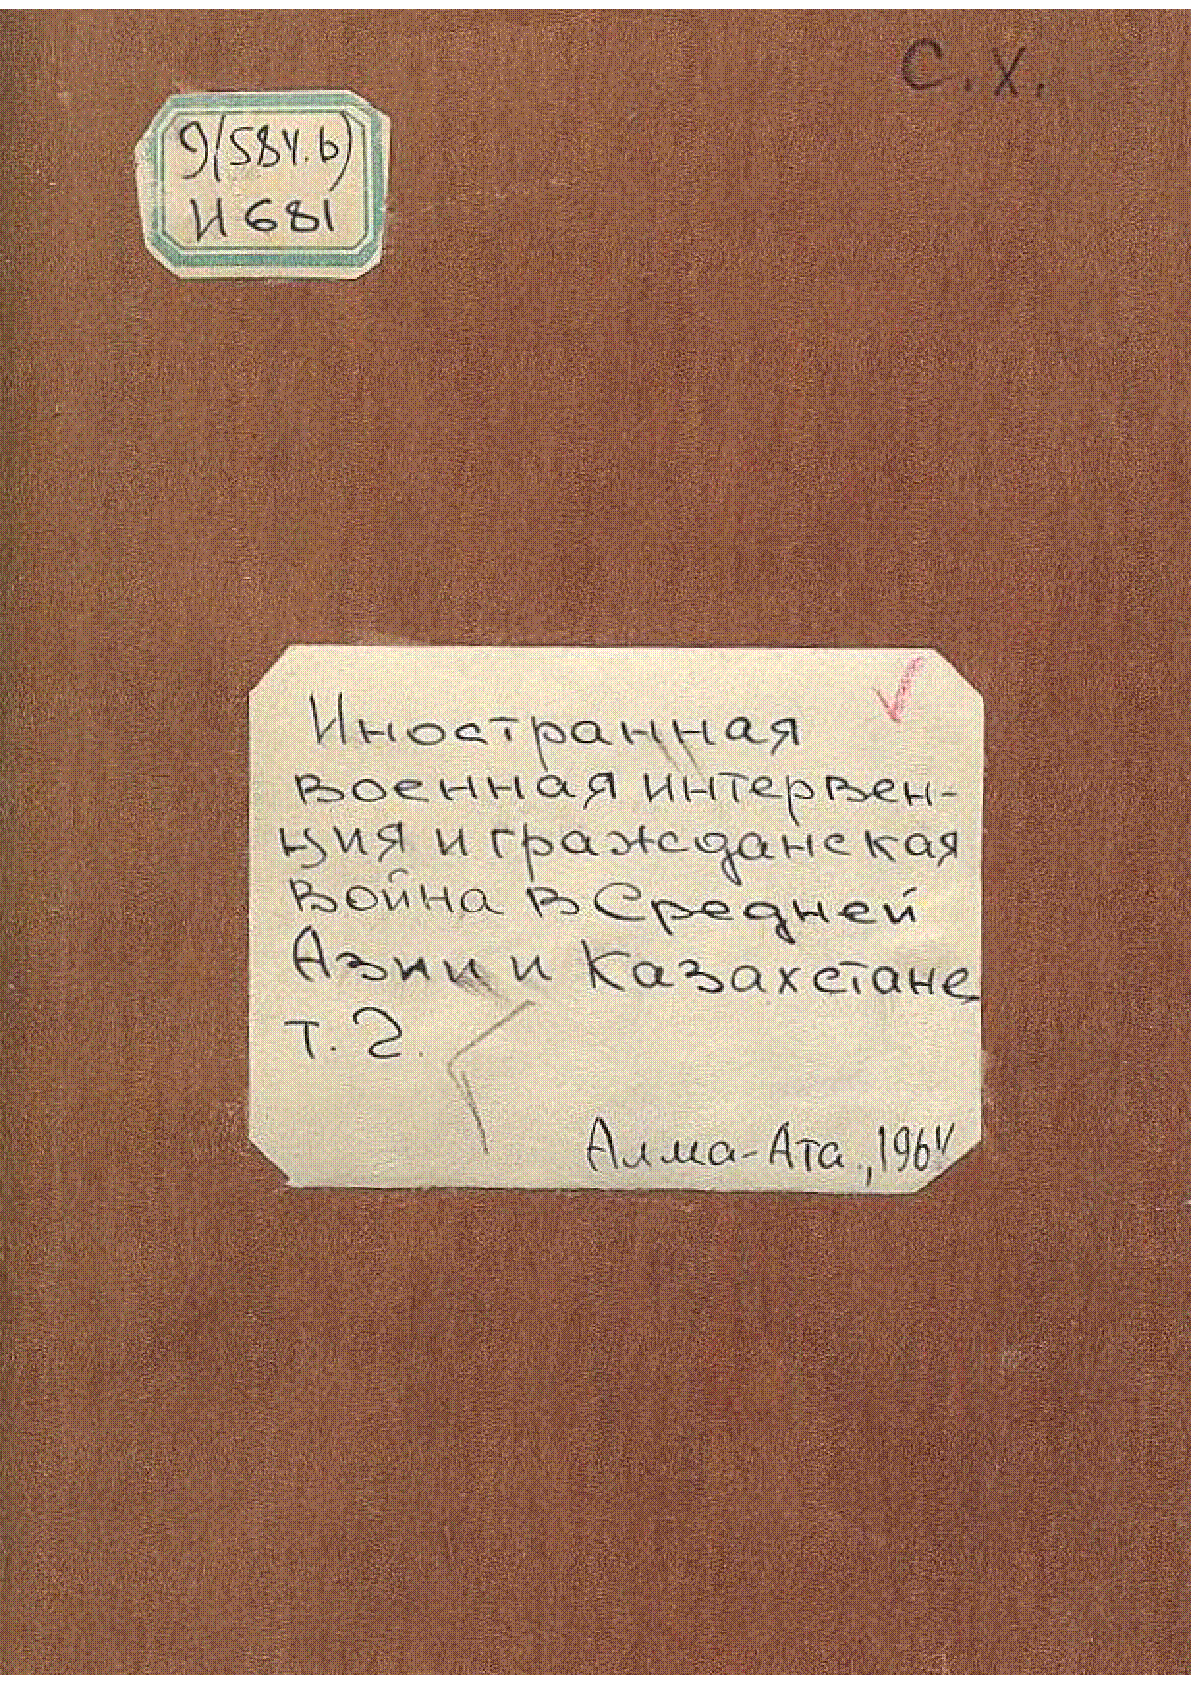 С.Х.
9(584.6)
И681
Иностранная
военная интервен-
ция и гражданская
война в Средней
Азии и Казахстане
т. 2.
Алма-Ата., 1964